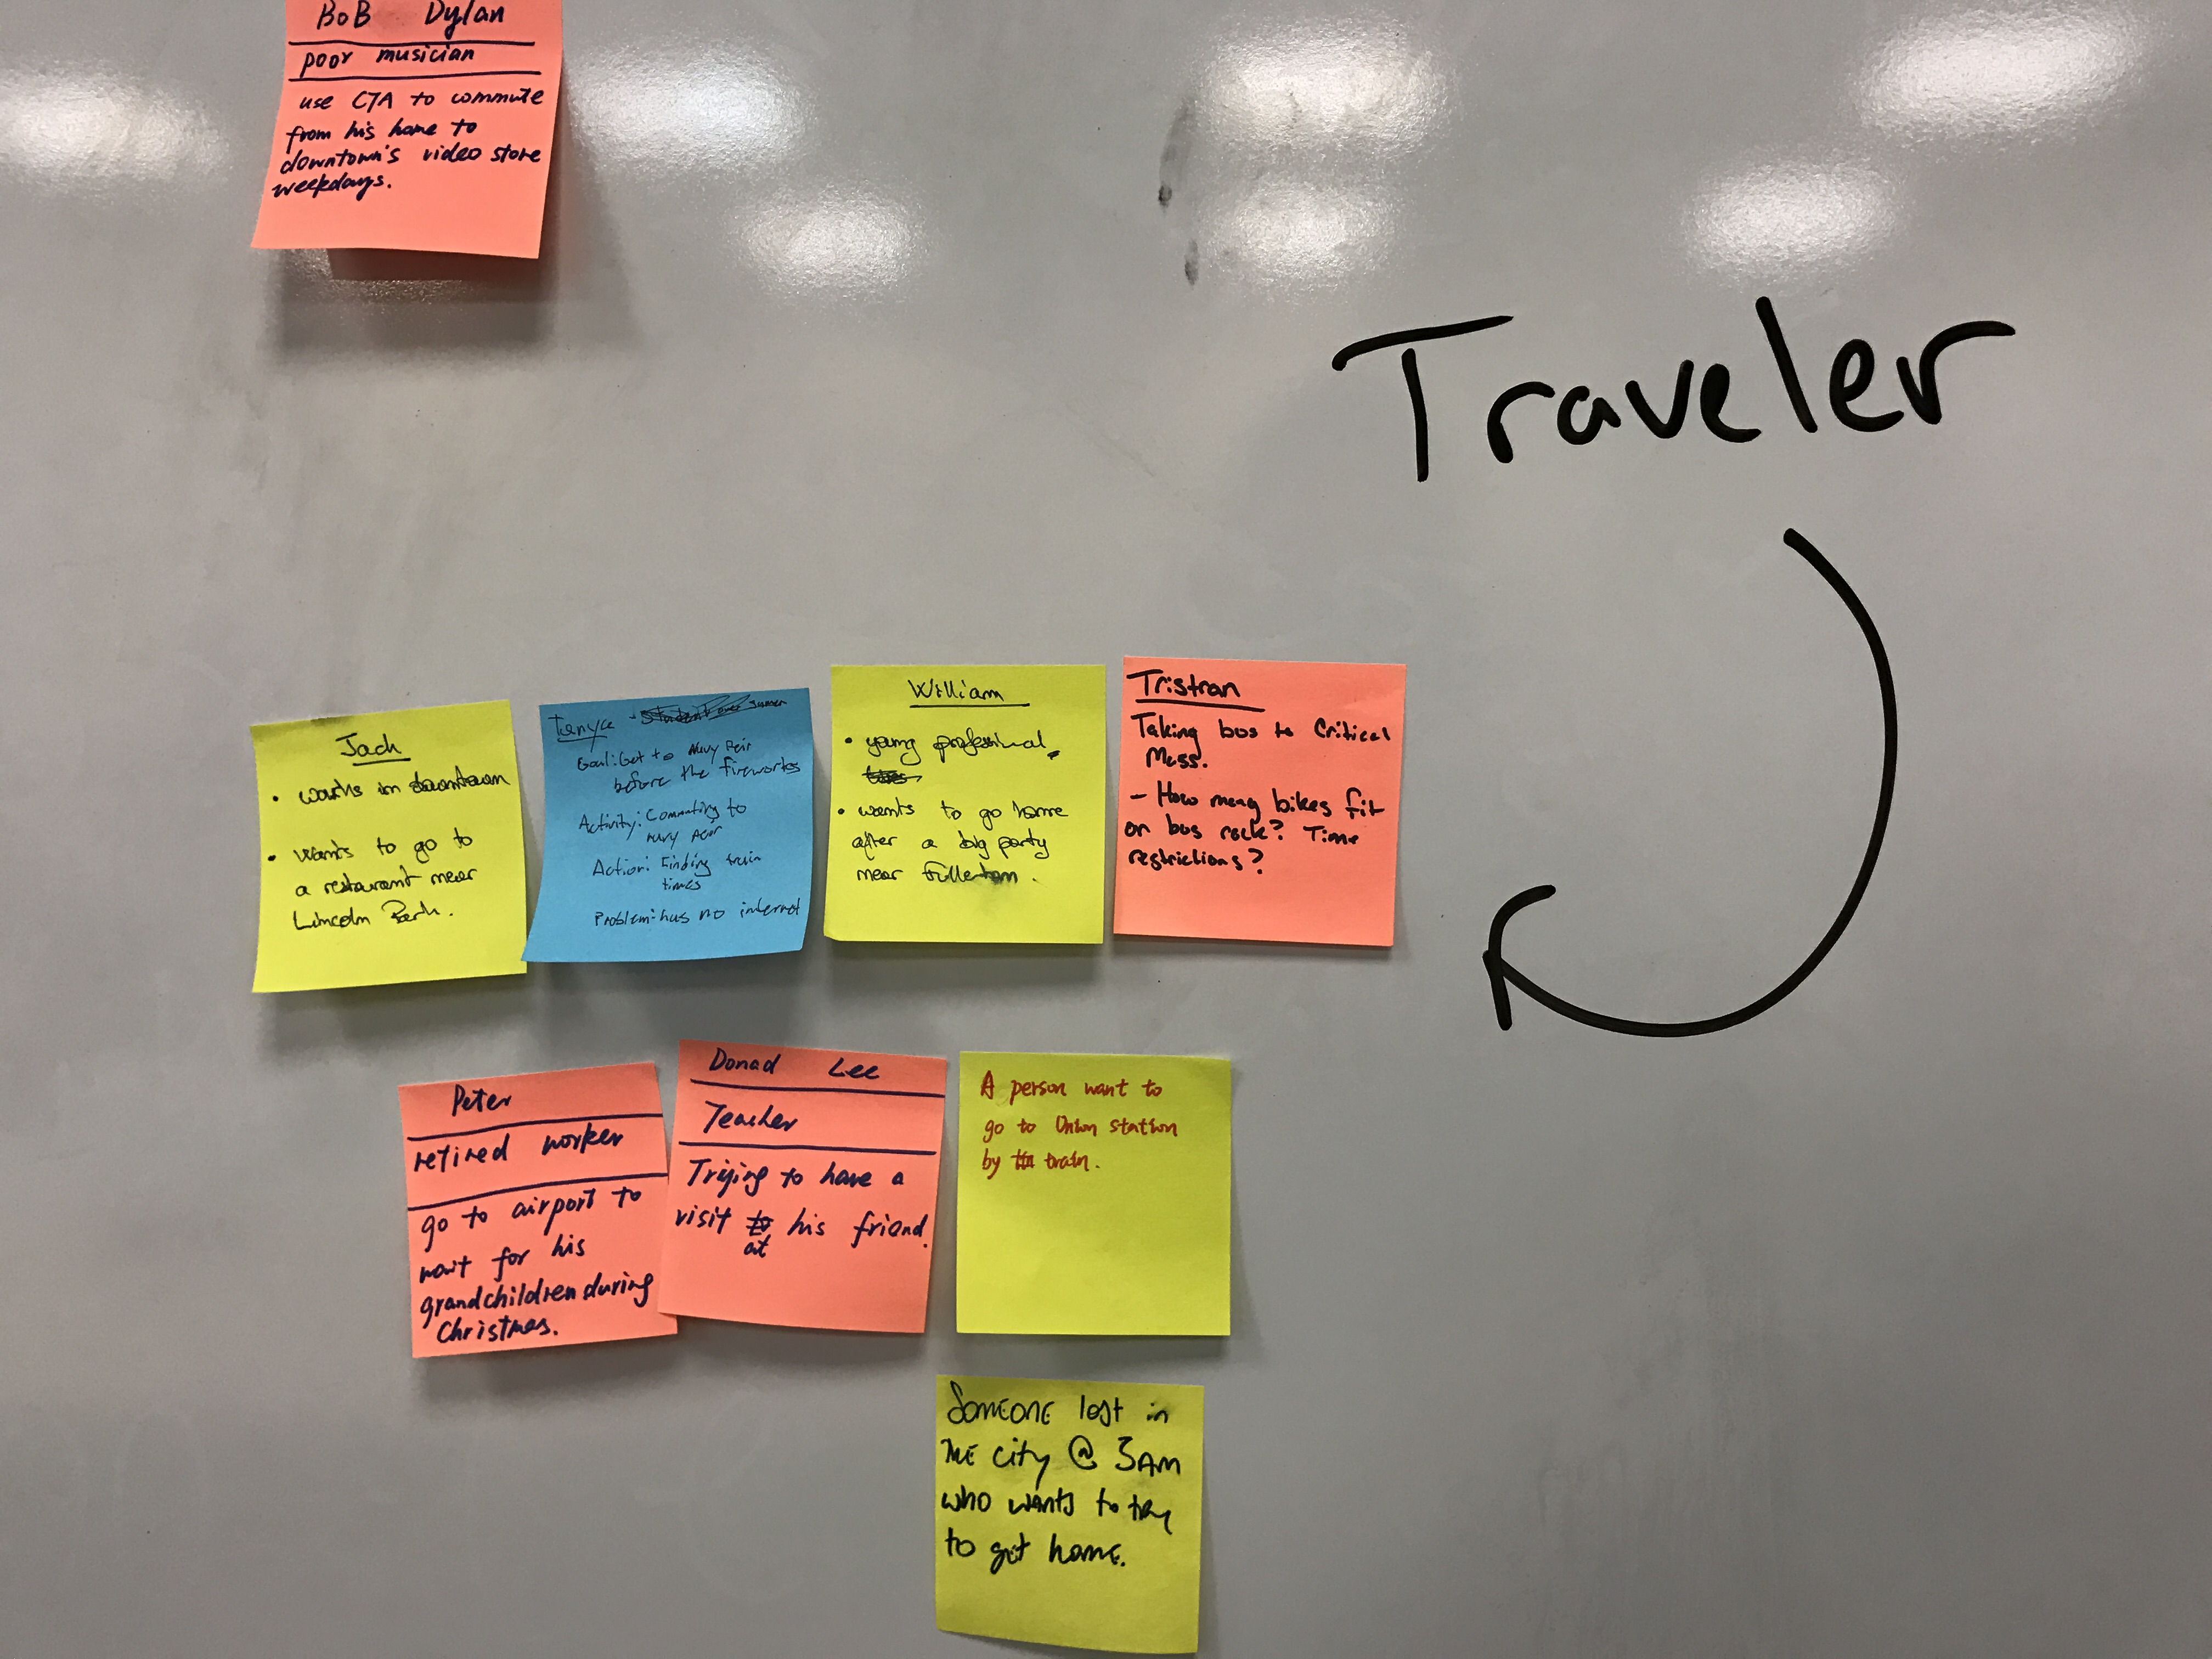 BoB Dylan
poor musician
use CTA to commute
from his home to
downtown's video store
weekdays.
Traveler
Jack
• works in downtown
• wants to go to
a restaurant near
Lincoln Park.
Goal: Get to Navy Peir
before the fireworks
Activity: Commuting to
Navy Peir
Action: Finding train
times
Problem: has no internet
William
• young professional
• wants to go home
after a big party
near Fullerton.
Tristran
Taking bus to Critical
Mass.
– How many bikes fit
on bus rack? Time
restrictions?
Peter
retired worker
go to airport to
wait for his
grandchildren during
Christmas.
Donad Lee
Teacher
Trying to have a
visit to his friend.
at
A person want to
go to Union station
by train.
Someone lost in
the city @ 3AM
who wants to try
to get home.